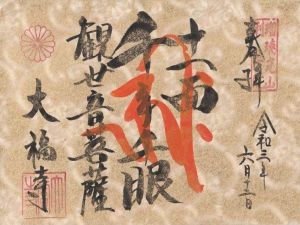 奉拝
令和三年
六月十二日
十一面
千手千眼
観世音菩薩
大福寺